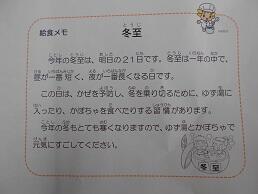 給食メモ
冬至
とうじ
今年の冬至は、明日の21日です。冬至は一年の中で、
昼が一番短く、夜が一番長くなる日です。
この日は、かぜを予防し、冬を乗り切るために、ゆず湯に
入ったり、かぼちゃを食べたりする習慣があります。
今年の冬もとても寒くなりますので、ゆず湯とかぼちゃで
元気にすごしてください。
冬至